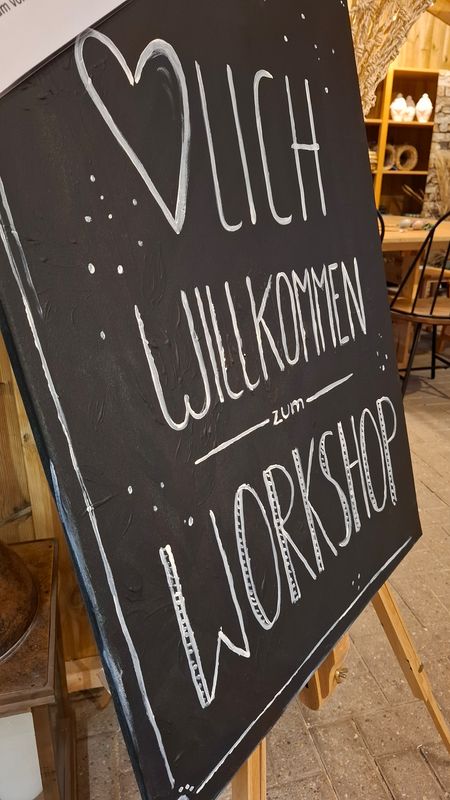 ♡LICH
WILLKOMMEN
zum
WORKSHOP